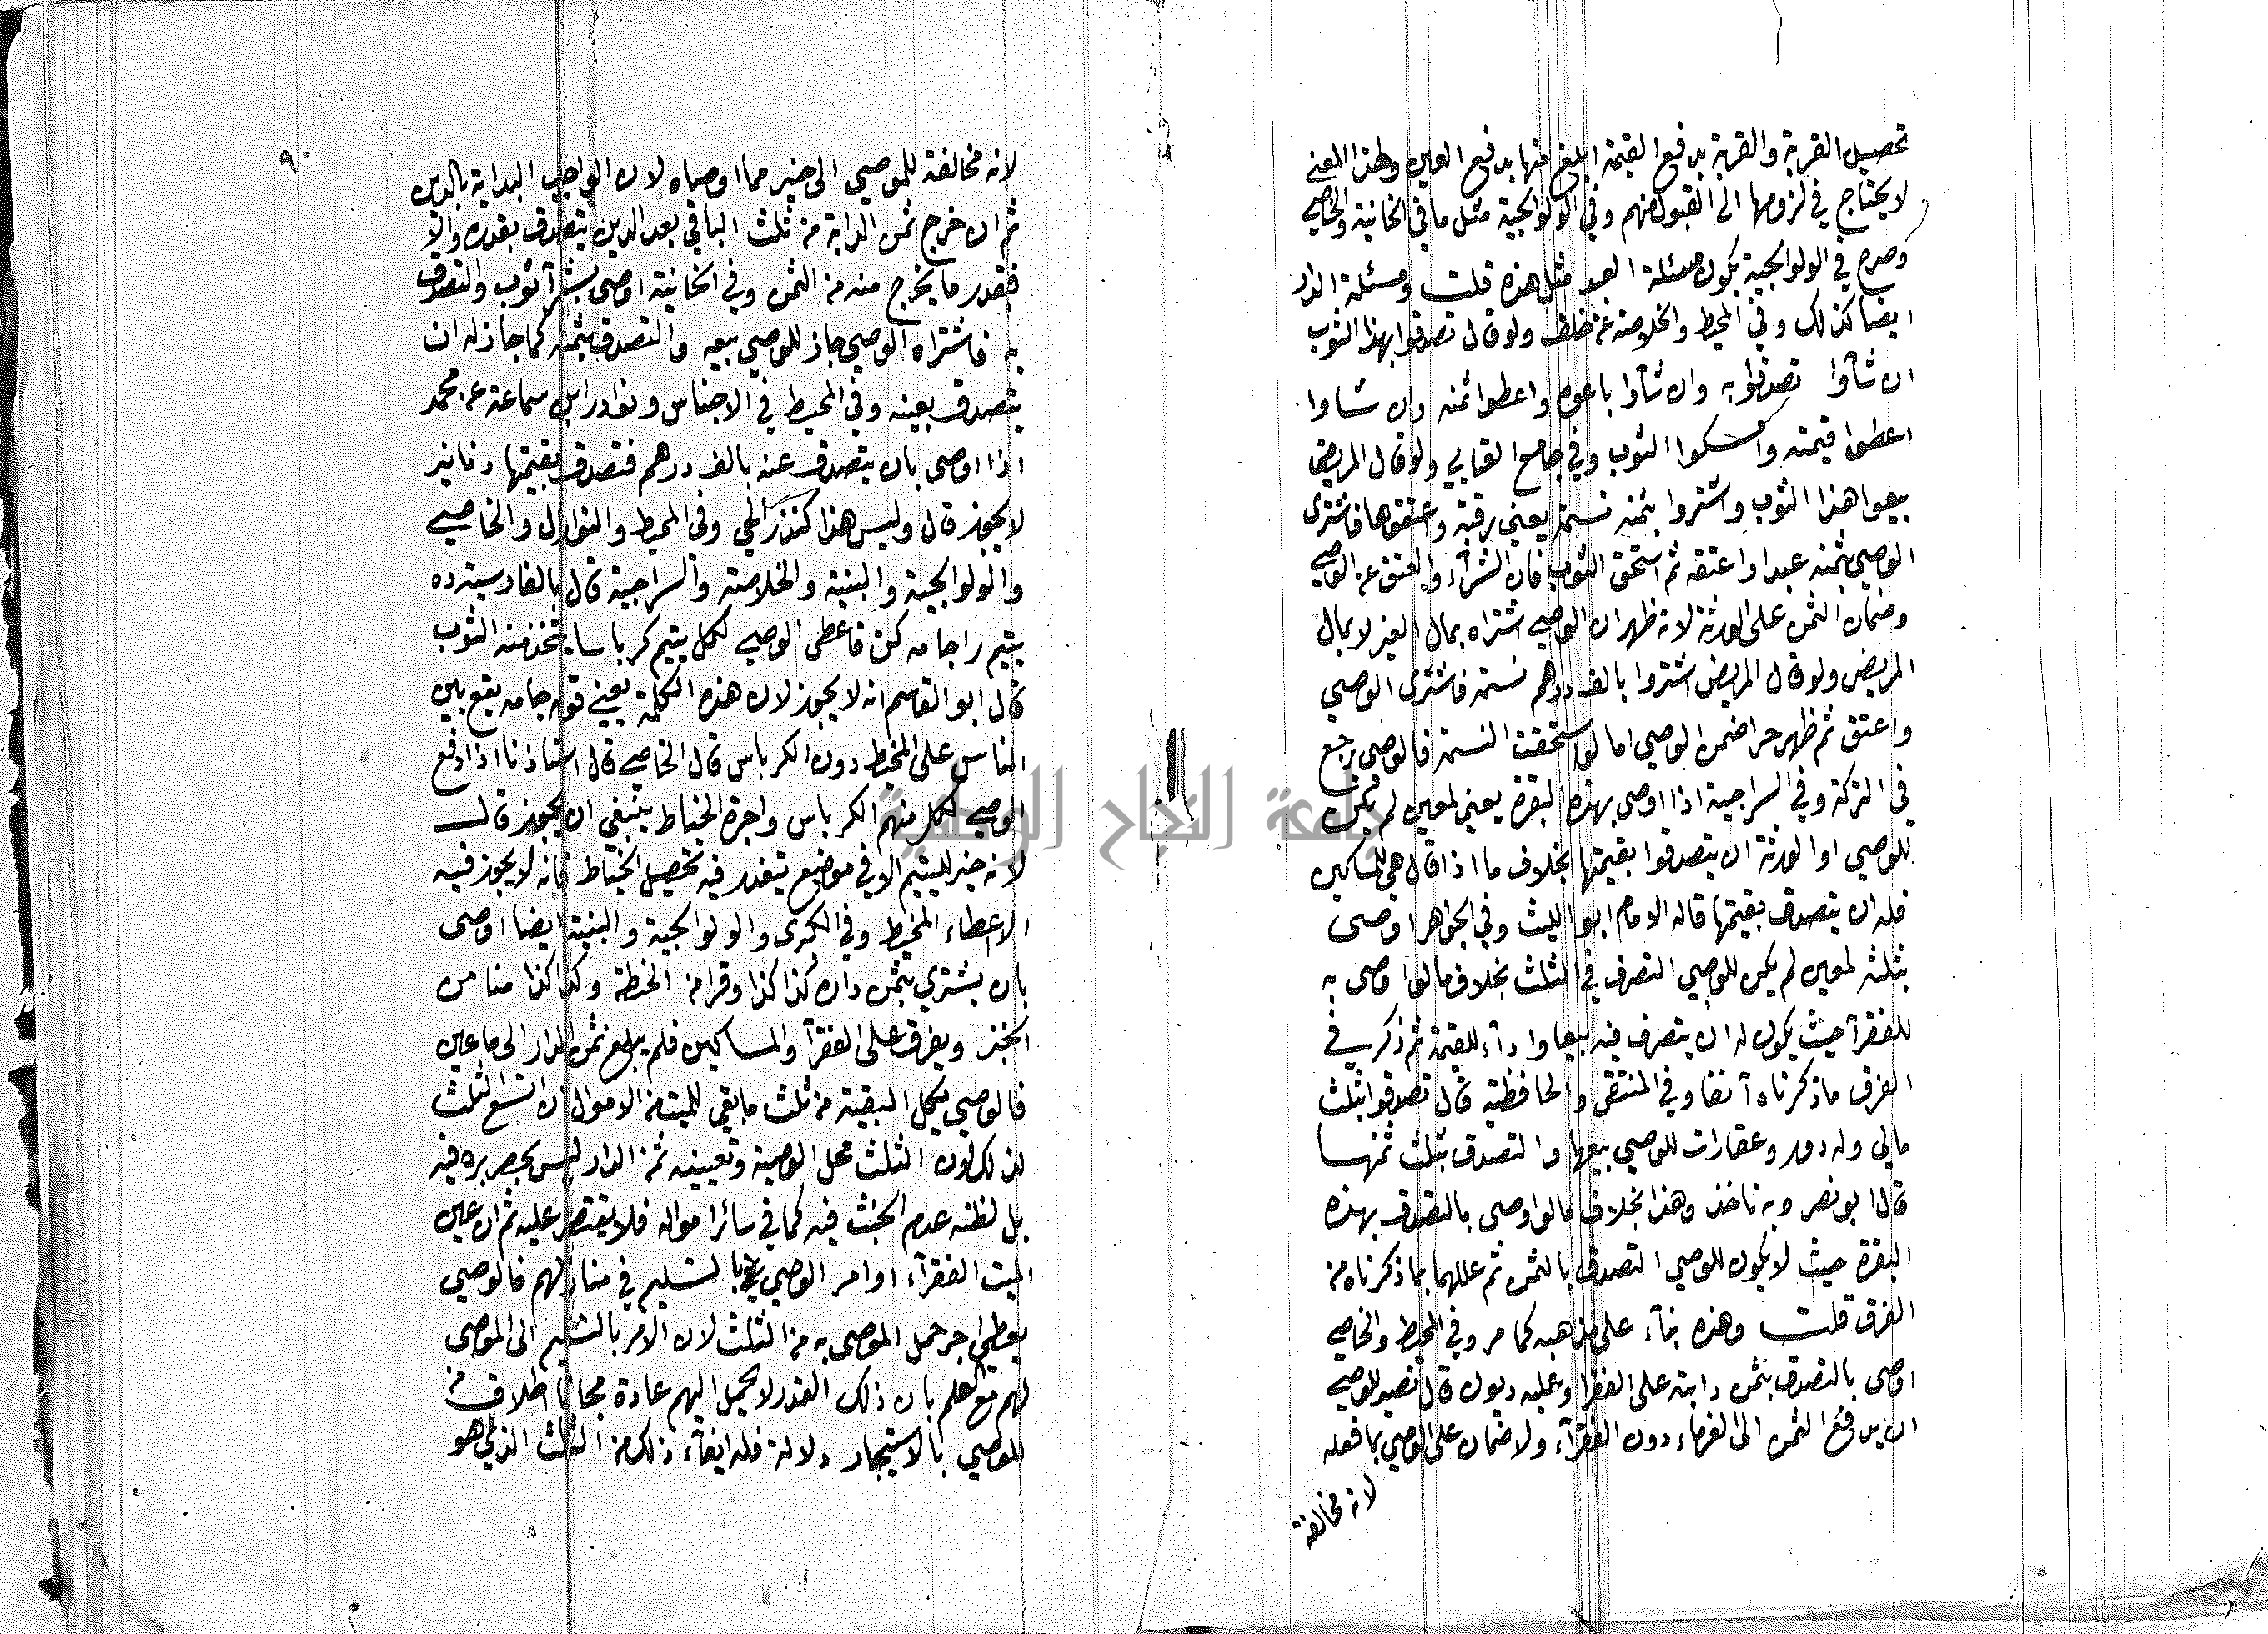 تحصيل القربة والقربة بدفع القيمة ابلغ منها بدفع العين ولهذا المعنى
لا يحتاج في لزومها الى القبول منهم وفي الولوالجية مثل ما في الخانية والخاصي
وصرح في الولوالجية بكون مسئلة العبد مثل هذه قلت ومسئلة الدار
ايضا كذلك وفي المحيط والخلاصة عن خلف ولو قال تصدقوا بهذا الثوب
ان شآوا تصدقوا به وان شآوا باعوه واعطوا ثمنه وان شاوا
اعطوا قيمته وامسكوا الثوب وفي جامع الفتاوي ولو قال المريض
بيعوا هذا الثوب واشتروا بثمنه نسمة يعني رقبة واعتقوها فاشترى
الوصي بثمنه عبدا واعتقه ثم استحق الثوب فان الشرآء والعتق عن الوصي
وضمان الثمن على الورثة لانه ظهر ان الوصي اشتراه بمال الغير لا بمال
المريض ولو قال المريض اشتروا بالف درهم نسمة فاشترى الوصي
واعتق ثم ظهر حرا ضمن الوصي اما لو استحقت النسمة فالوصي يرجع
في التركة وفي السراجية اذا اوصى بهذه البقرة يعني لمعين لم يكن
للوصي او الورثة ان يتصدقوا بقيمتها بخلاف ما اذا قال هي للمساكين
فله ان يتصدق بقيمتها قاله الامام ابو الليث وفي الجواهر اوصى
بثلثه لمعين لم يكن للوصي التصرف في الثلث بخلاف ما لو اوصى به
للفقرآ حيث يكون له ان يتصرف فيه بيعا وادآء للقيمة ثم ذكر في
الفرق ما ذكرناه آنفا وفي المنتقى والحافظية قال تصدقوا بثلث
مالي وله دور وعقارات للوصي بيعها والتصدق بثلث ثمنها
قال ابو نصر وبه ناخذ وهذا بخلاف ما لو اوصى بالتصدق بهذه
البقرة حيث لا يكون للوصي التصدق بالثمن ثم عللهما بما ذكرناه من
الفرق قلت وهذه بنآء على مذهبه كما مر وفي المحيط والخاصي
اوصى بالتصدق بثمن دابته على الفقرا وعليه ديون قال نصير للوصي
ان يدفع الثمن الى الغرماء دون الفقرآء ولا ضمان على الوصي بما فعله
لانه مخالفة
٩٠
لانه مخالفة للموصي الى خير مما اوصاه لان الواجب البداية بالدين
ثم ان خرج ثمن الدابة من ثلث الباقي بعد الدين يتصدق بقدره والا
فبقدر ما يخرج منه من الثمن وفي الخانية اوصى بشرآ ثوب والتصدق
به فاشتراه الوصي جاز للوصي بيعه والتصدق بثمنه كما جاز له ان
يتصدق بعينه وفي المحيط في الاجناس ونوادر ابن سماعة عن محمد
اذا اوصى بان يتصدق عنه بالف درهم فتصدق بقيمتها دنانير
لا يجوز قال وليس هذا كنذر الحي وفي المحيط والنوازل والخاصي
والولوالجية والبنية والخلاصة والسراجية قال بالفارسية ده
يتيم را جامه كن فاعطى الوصي لكل يتيم كرباسا يتخذ منه الثوب
قال ابو القاسم انه لا يجوز لان هذه الكلمة يعني قوله جامه يقع بين
الناس على المخيط دون الكرباس قال الخاصي قال استاذنا اذا دفع
الوصي لكل منهم الكرباس واجرة الخياط ينبغي ان يجوز قال
لانه خير لليتيم الا في موضع يتعذر فيه تحصيل الخياط فانه لا يجوز فيه
الا اعطاء المخيط وفي الكبرى والولوالجية والبنية ايضا اوصى
بان يشترى بثمن داره كذا كذا وقرا من الحنطة وكذا كذا منا من
الخبز ويفرق على الفقرآ والمساكين فلم يبلغ ثمن الدار الى ما عين
فالوصي يكمل البقية من ثلث ما بقي للميت من الاموال ان اتسع الثلث
لذلك لكون الثلث محل الوصية وتعيينه ثمن الدار ليس بحصر بره فيه
بل لظنه عدم الخبث فيه كما في سائر امواله فلا يقتصر عليه ثم ان عين
الميت الفقرآء او امر الوصي بالتسليم في منازلهم فالوصي
يعطي اجر حمل الموصى به من الثلث لان الامر بالتسليم الى الموصى
لهم مع العلم بان ذلك القدر لا يحمل اليهم عادة مجانا اطلاق من
للموصي بالاستيجار دلالة فله ايفآء ذلك من الثلث الذي هو
جامعة النجاح الوطنية